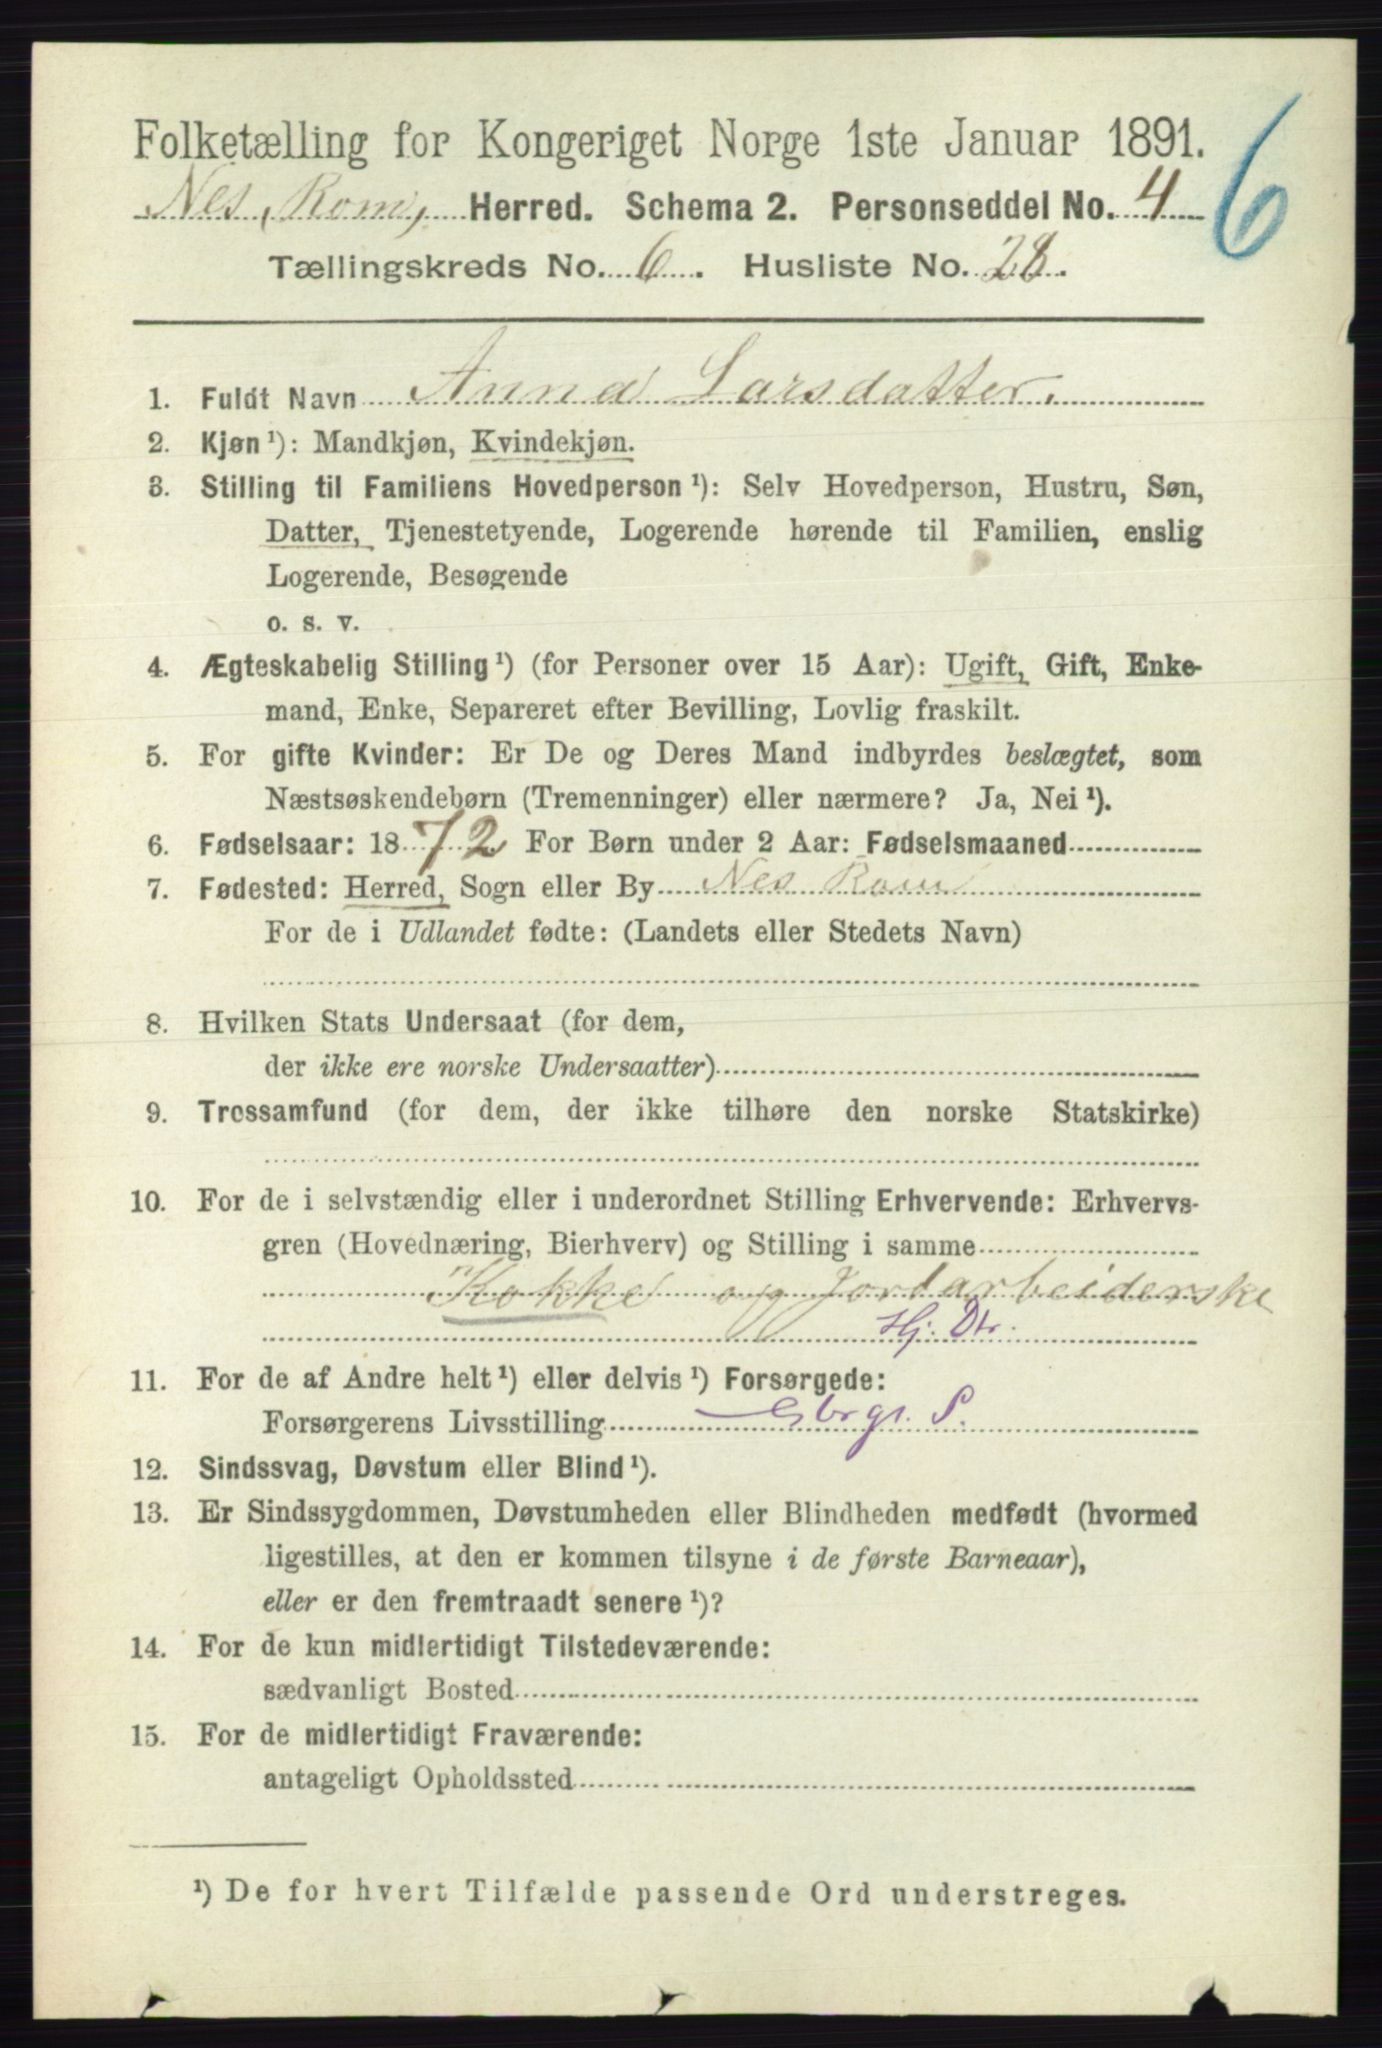 Folketælling for Kongeriget Norge 1ste Januar 1891.
6
Nes, Rom, Herred. Schema 2. Personseddel No. 4
Tællingskreds No. 6. Husliste No. 28.
1. Fuldt Navn Anna Larsdatter.
2. Kjøn ¹): Mandkjøn, Kvindekjøn.
3. Stilling til Familiens Hovedperson ¹): Selv Hovedperson, Hustru, Søn,
Datter, Tjenestetyende, Logerende hørende til Familien, enslig
Logerende, Besøgende
o. s. v.
4. Ægteskabelig Stilling ¹) (for Personer over 15 Aar): Ugift, Gift, Enke-
mand, Enke, Separeret efter Bevilling, Lovlig fraskilt.
5. For gifte Kvinder: Er De og Deres Mand indbyrdes beslægtet, som
Næstsøskendebørn (Tremenninger) eller nærmere? Ja, Nei ¹).
6. Fødselsaar: 1872. For Børn under 2 Aar: Fødselsmaaned
7. Fødested: Herred, Sogn eller By Nes Rom
For de i Udlandet fødte: (Landets eller Stedets Navn)
8. Hvilken Stats Undersaat (for dem,
der ikke ere norske Undersaatter)
9. Trossamfund (for dem, der ikke tilhøre den norske Statskirke)
10. For de i selvstændig eller i underordnet Stilling Erhvervende: Erhvervs-
gren (Hovednæring, Bierhverv) og Stilling i samme
"Kokke og Jordarbeiderske
Hj. Dtr.
11. For de af Andre helt ¹) eller delvis ¹) Forsørgede:
Forsørgerens Livsstilling Gbrgr. S.
12. Sindssvag, Døvstum eller Blind ¹).
13. Er Sindssygdommen, Døvstumheden eller Blindheden medfødt (hvormed
ligestilles, at den er kommen tilsyne i de første Barneaar),
eller er den fremtraadt senere ¹)?
14. For de kun midlertidigt Tilstedeværende:
sædvanligt Bosted
15. For de midlertidigt Fraværende:
antageligt Opholdssted
¹) De for hvert Tilfælde passende Ord understreges.